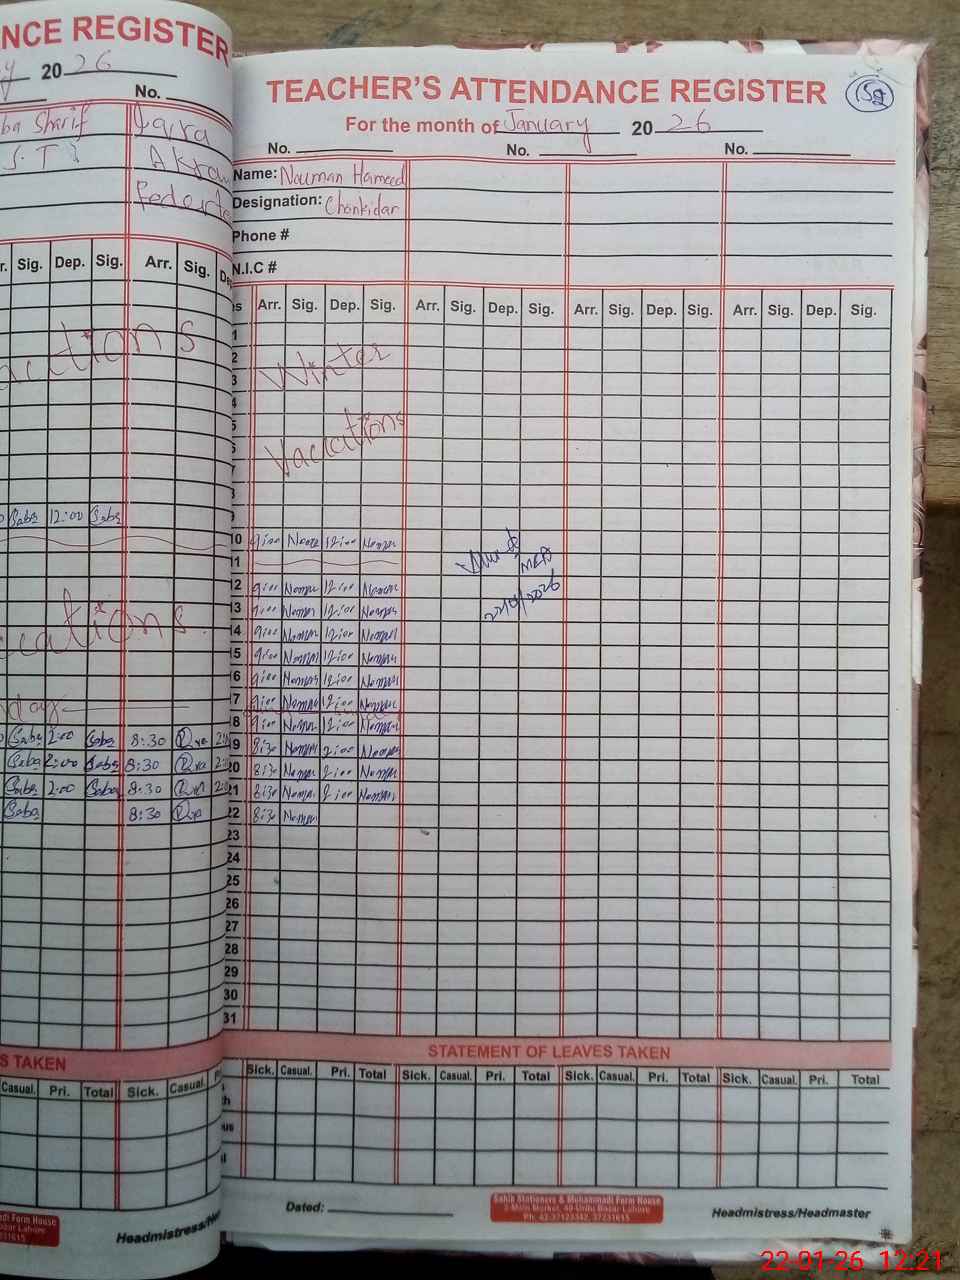 NCE REGISTER
y 20 26
No.
ba Sharif Iqra
S.T Akra
Federte
r. Sig. Dep. Sig. Arr. Sig. De
acations
Saba 12:00 Saba
cations.
nday
Saba 2:00 Saba 8:30 Iqra 2:00
Saba 2:00 Saba 8:30 Iqra 2:00
Saba 2:00 Saba 8:30 Iqra 2:00
Saba 8:30 Iqra
S TAKEN
Casual. Pri. Total Sick. Casual.
Headmistress/He
TEACHER'S ATTENDANCE REGISTER
59
For the month of January 20 26
No. No. No.
Name: Nouman Hameed
Designation: Chonkidar
Phone #
N.I.C #
es Arr. Sig. Dep. Sig. Arr. Sig. Dep. Sig. Arr. Sig. Dep. Sig. Arr. Sig. Dep. Sig.
1
2 Winter
3
4
5 Vacications
6
7
8
9
10 9:00 Noman 12:00 Noman
11
12 9:00 Noman 12:00 Noman
MEA
13 9:00 Noman 12:00 Noman
22/01/2026
14 9:00 Noman 12:00 Noman
15 9:00 Noman 12:00 Noman
16 9:00 Noman 12:00 Noman
17 9:00 Noman 12:00 Noman
18 9:00 Noman 12:00 Noman
19 8:30 Noman 2:00 Noman
20 8:30 Noman 2:00 Noman
21 8:30 Noman 2:00 Noman
22 8:30 Noman
23
24
25
26
27
28
29
30
31
STATEMENT OF LEAVES TAKEN
Sick. Casual. Pri. Total Sick. Casual. Pri. Total Sick. Casual. Pri. Total Sick. Casual. Pri. Total
Dated:
Sahib Stationers & Muhammadi Form House
2-Main Market, 40-Urdu Bazar Lahore
Ph: 42-37123342, 37231615
Headmistress/Headmaster
22-01-26 12:21